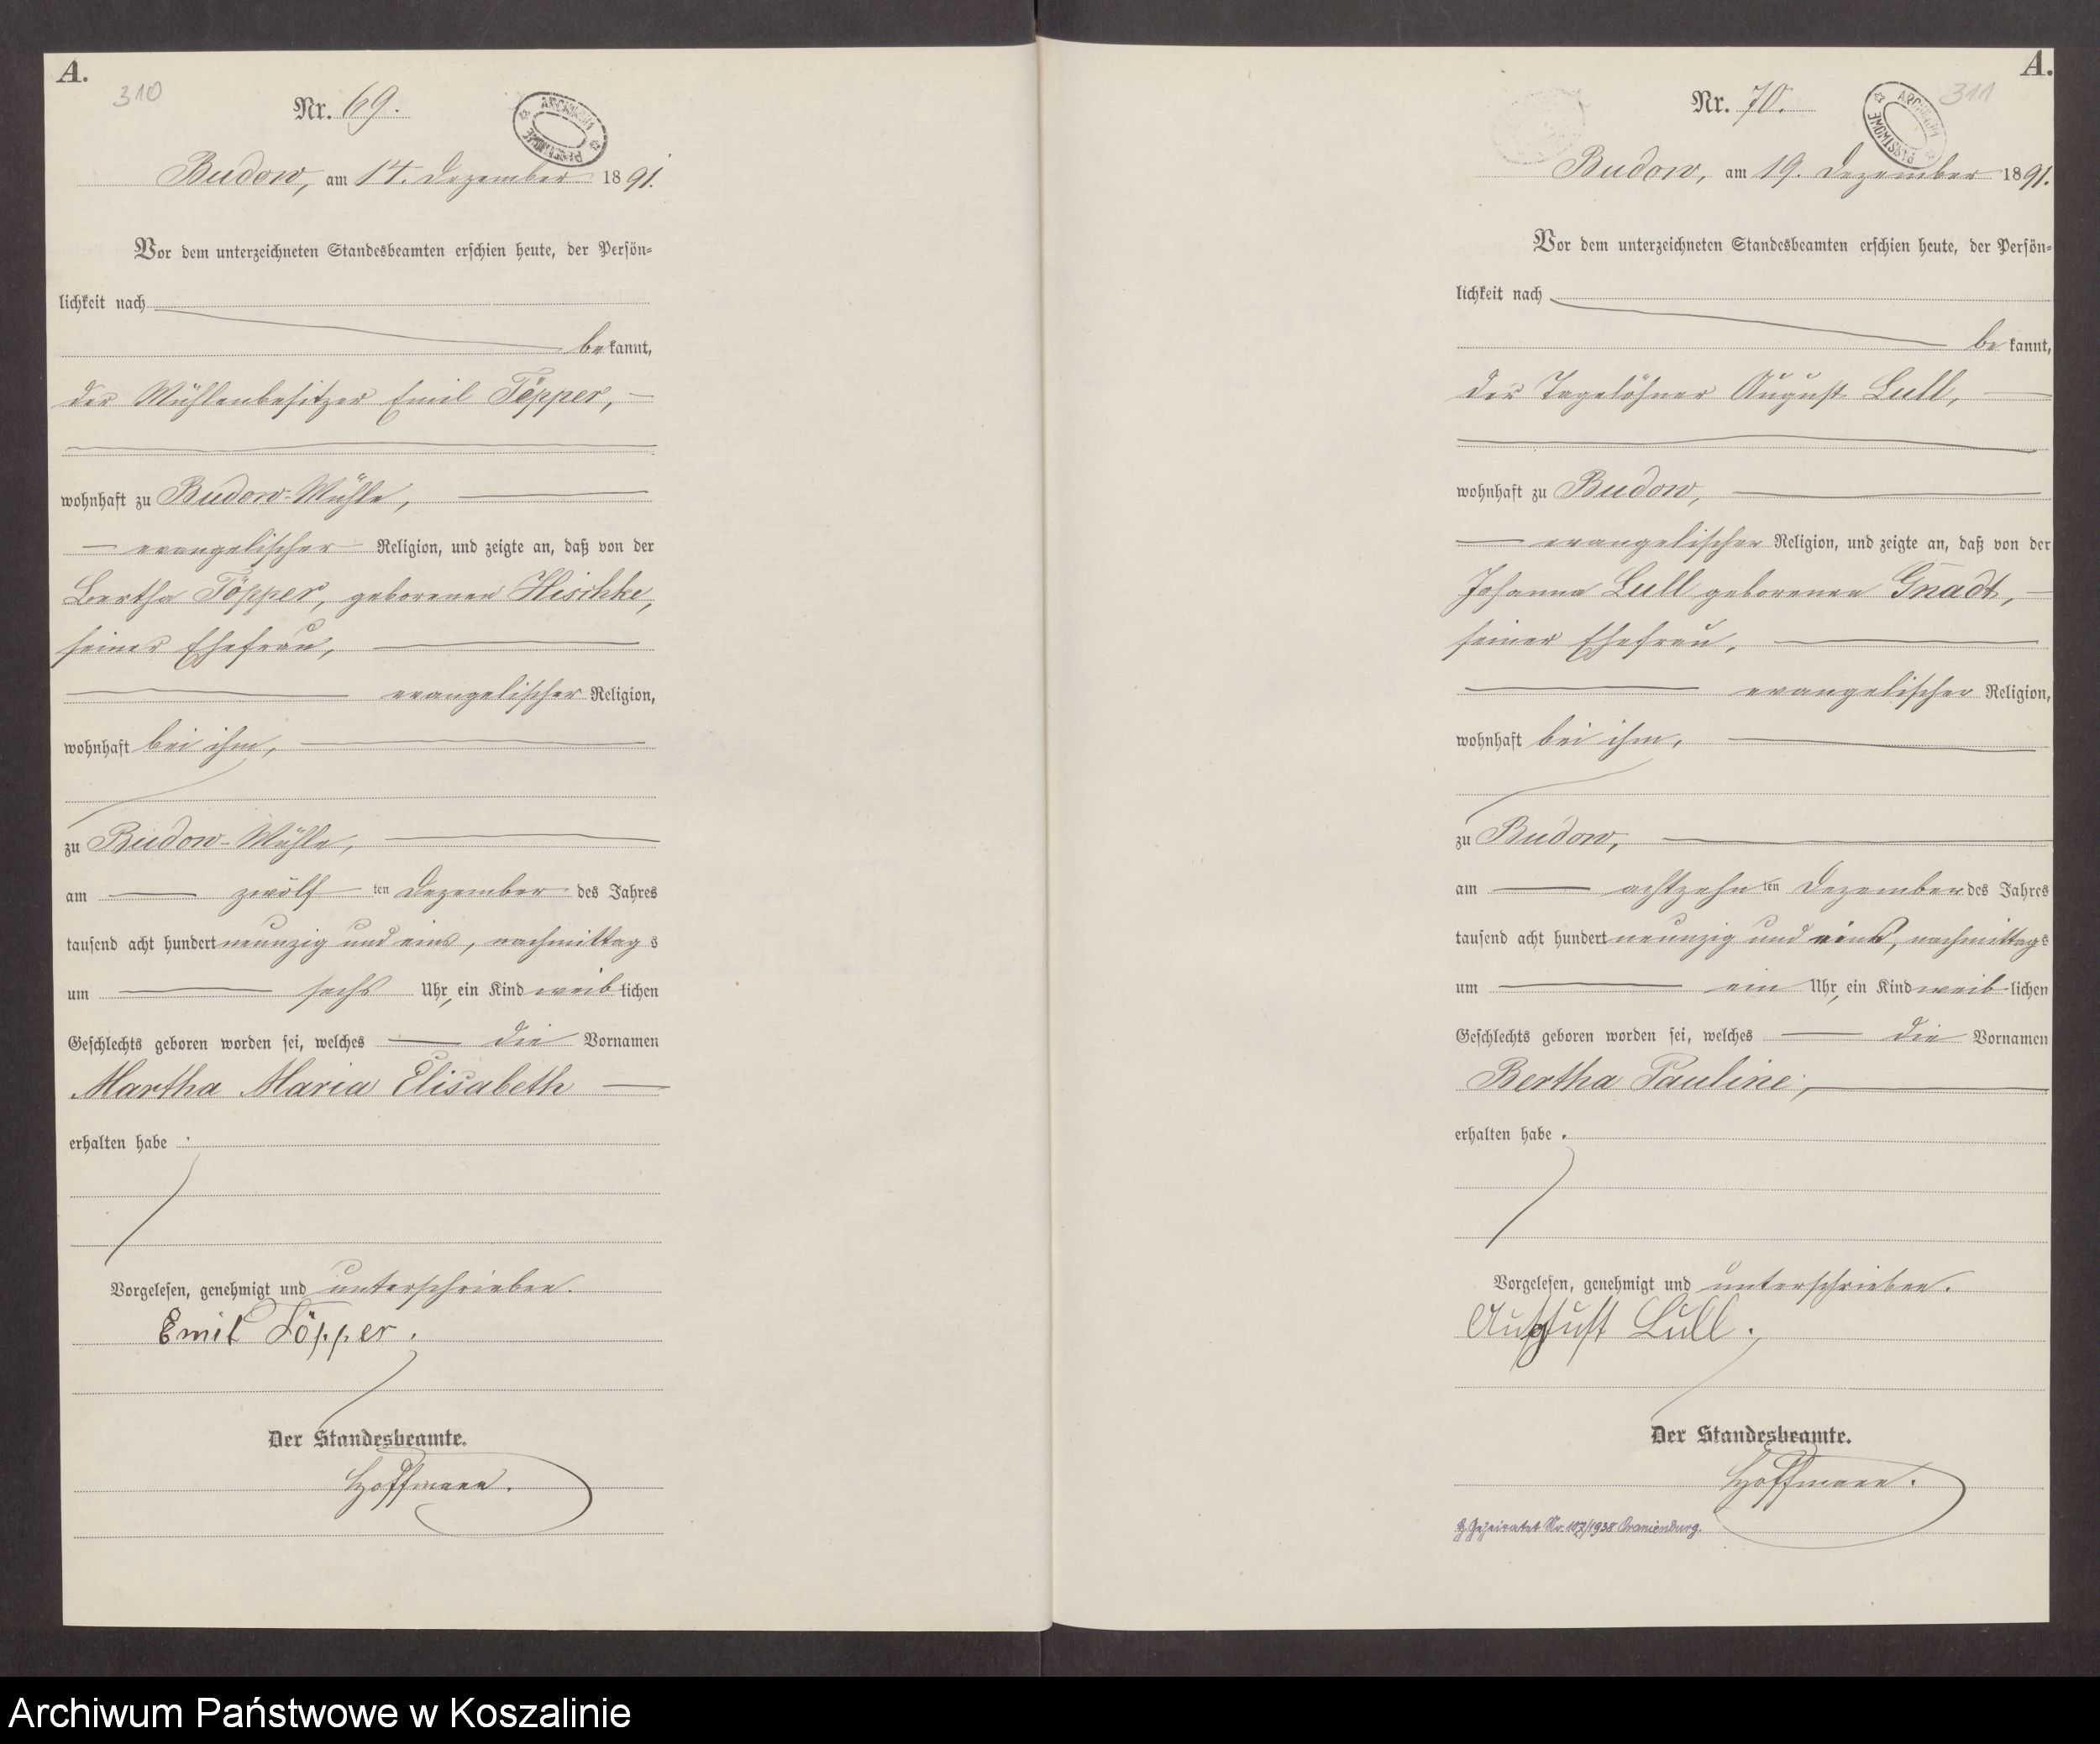 A.
310
Nr. 69.
ARCHIWUM PAŃSTWOWE
Budow, am 14. Dezember 1891.
Vor dem unterzeichneten Standesbeamten erschien heute, der Persön-
lichkeit nach
bekannt,
der Mühlenbesitzer Emil Töpper,
wohnhaft zu Budow-Mühle,
evangelischer Religion, und zeigte an, daß von der
Bertha Töpper, geborenen Hischke,
seiner Ehefrau,
evangelischer Religion,
wohnhaft bei ihm,
zu Budow-Mühle,
am zwölf ten Dezember des Jahres
tausend acht hundert neunzig und eins, nachmittags
um sechs Uhr, ein Kind weiblichen
Geschlechts geboren worden sei, welches die Vornamen
Martha Maria Elisabeth
erhalten habe.
Vorgelesen, genehmigt und unterschrieben.
Emil Töpper.
Der Standesbeamte.
Hoffmann.
A.
311
Nr. 70.
ARCHIWUM PAŃSTWOWE
Budow, am 19. Dezember 1891.
Vor dem unterzeichneten Standesbeamten erschien heute, der Persön-
lichkeit nach
bekannt,
der Tagelöhner August Lull,
wohnhaft zu Budow,
evangelischer Religion, und zeigte an, daß von der
Johanna Lull geborenen Gnadt,
seiner Ehefrau,
evangelischer Religion,
wohnhaft bei ihm,
zu Budow,
am achtzehn ten Dezember des Jahres
tausend acht hundert neunzig und eins, nachmittags
um ein Uhr, ein Kind weiblichen
Geschlechts geboren worden sei, welches die Vornamen
Bertha Pauline,
erhalten habe.
Vorgelesen, genehmigt und unterschrieben.
August Lull.
Der Standesbeamte.
Hoffmann.
Geheiratet Nr. 107/1938 Oranienburg.
Archiwum Państwowe w Koszalinie